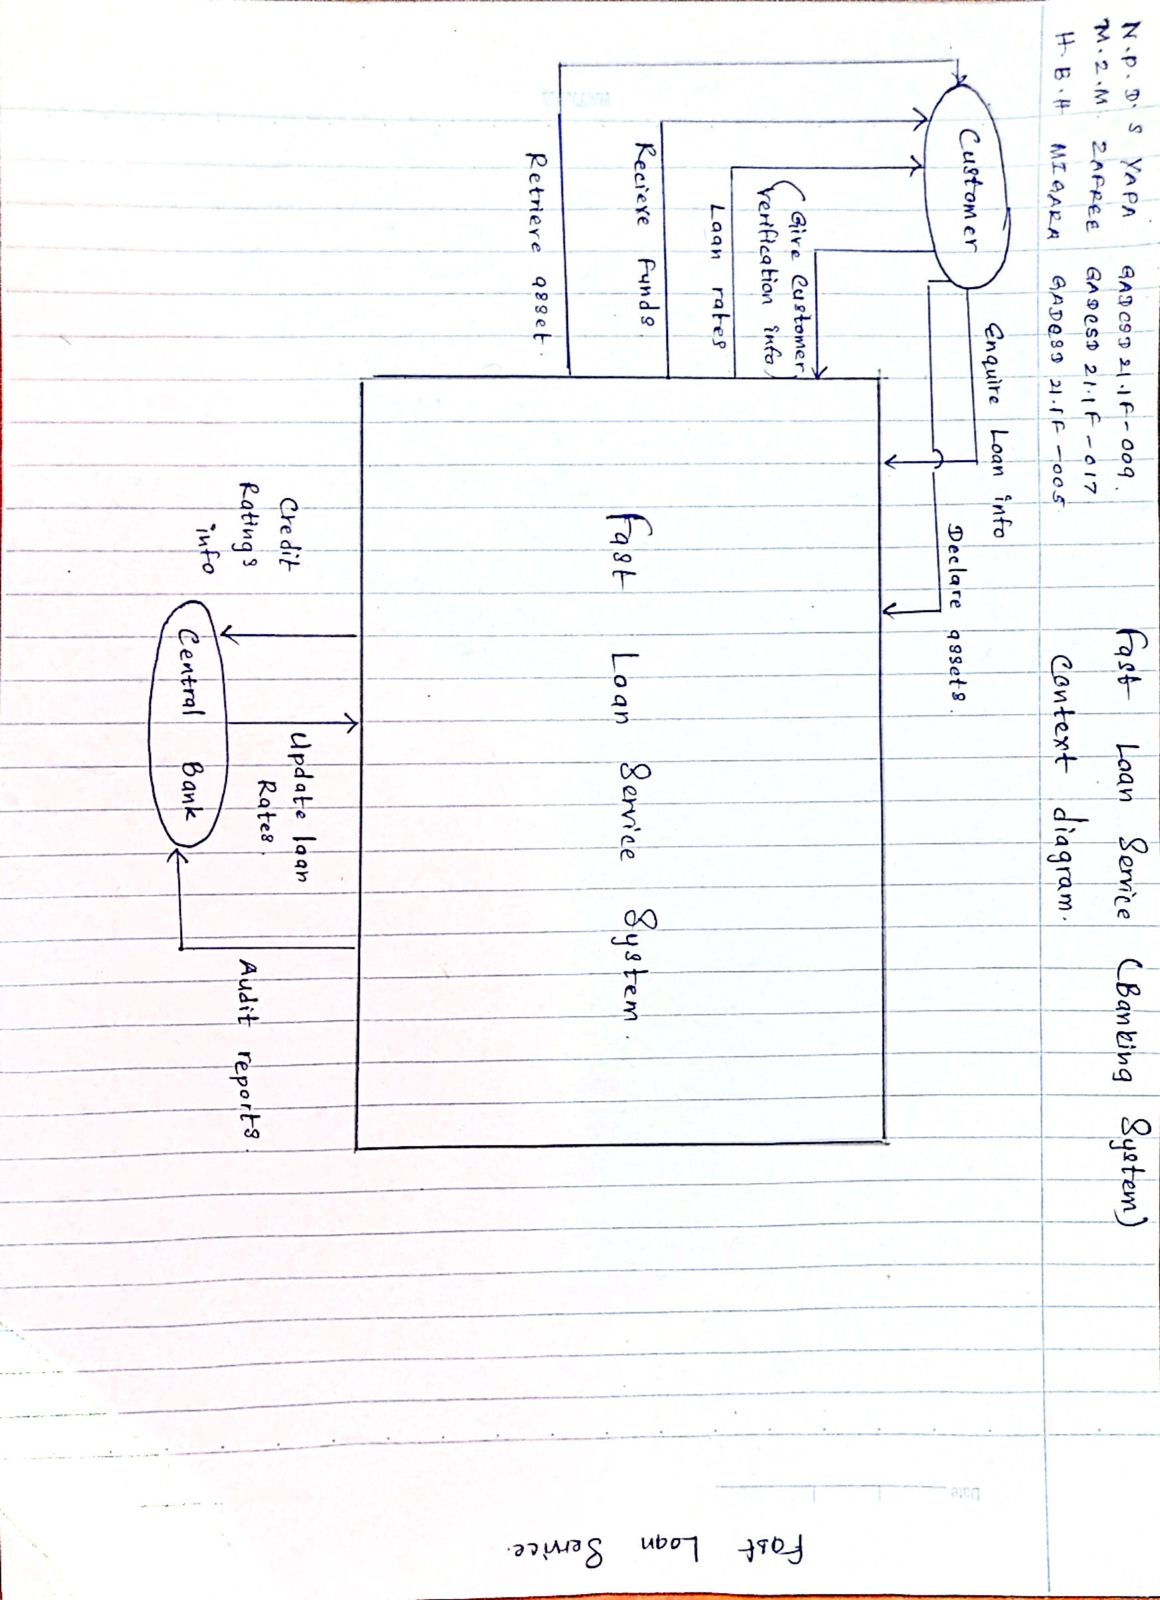 N.P.D.S YAPA GADCSD 21.1F-009.
M.Z.M. ZAFREE GADCSD 21.1F-017
H.B.H MIGARA GADCSD 21.1F-005
Fast Loan Service (Banking System)
Context diagram.
Customer
Enquire Loan info
Declare assets.
(Give Customer
verification info)
Loan rates
Recieve funds.
Retrieve asset.
Fast Loan Service System.
Credit
Ratings
info
Update loan
Rates.
Audit reports.
Central Bank
Date
Fast Loan Service.